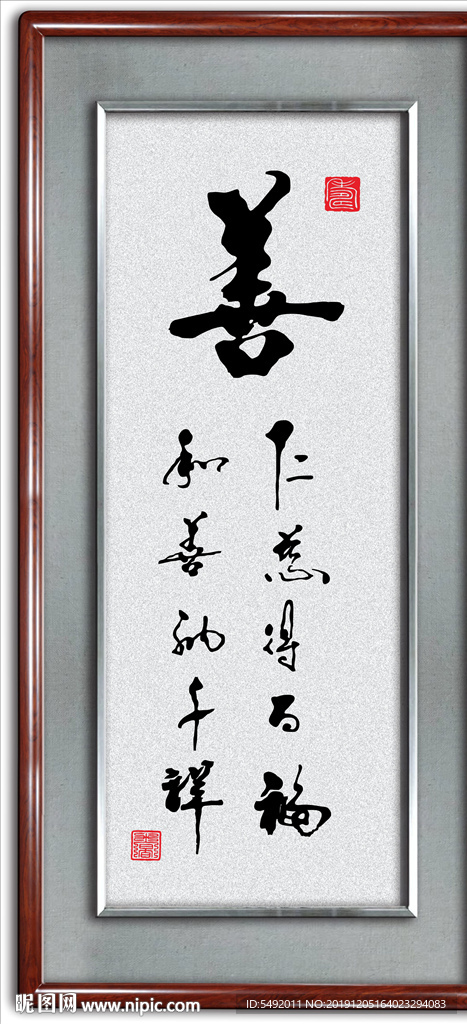 善
仁慈得百福
和善納千祥
昵图网 www.nipic.com
ID:5492011 NO:20191205164023294083